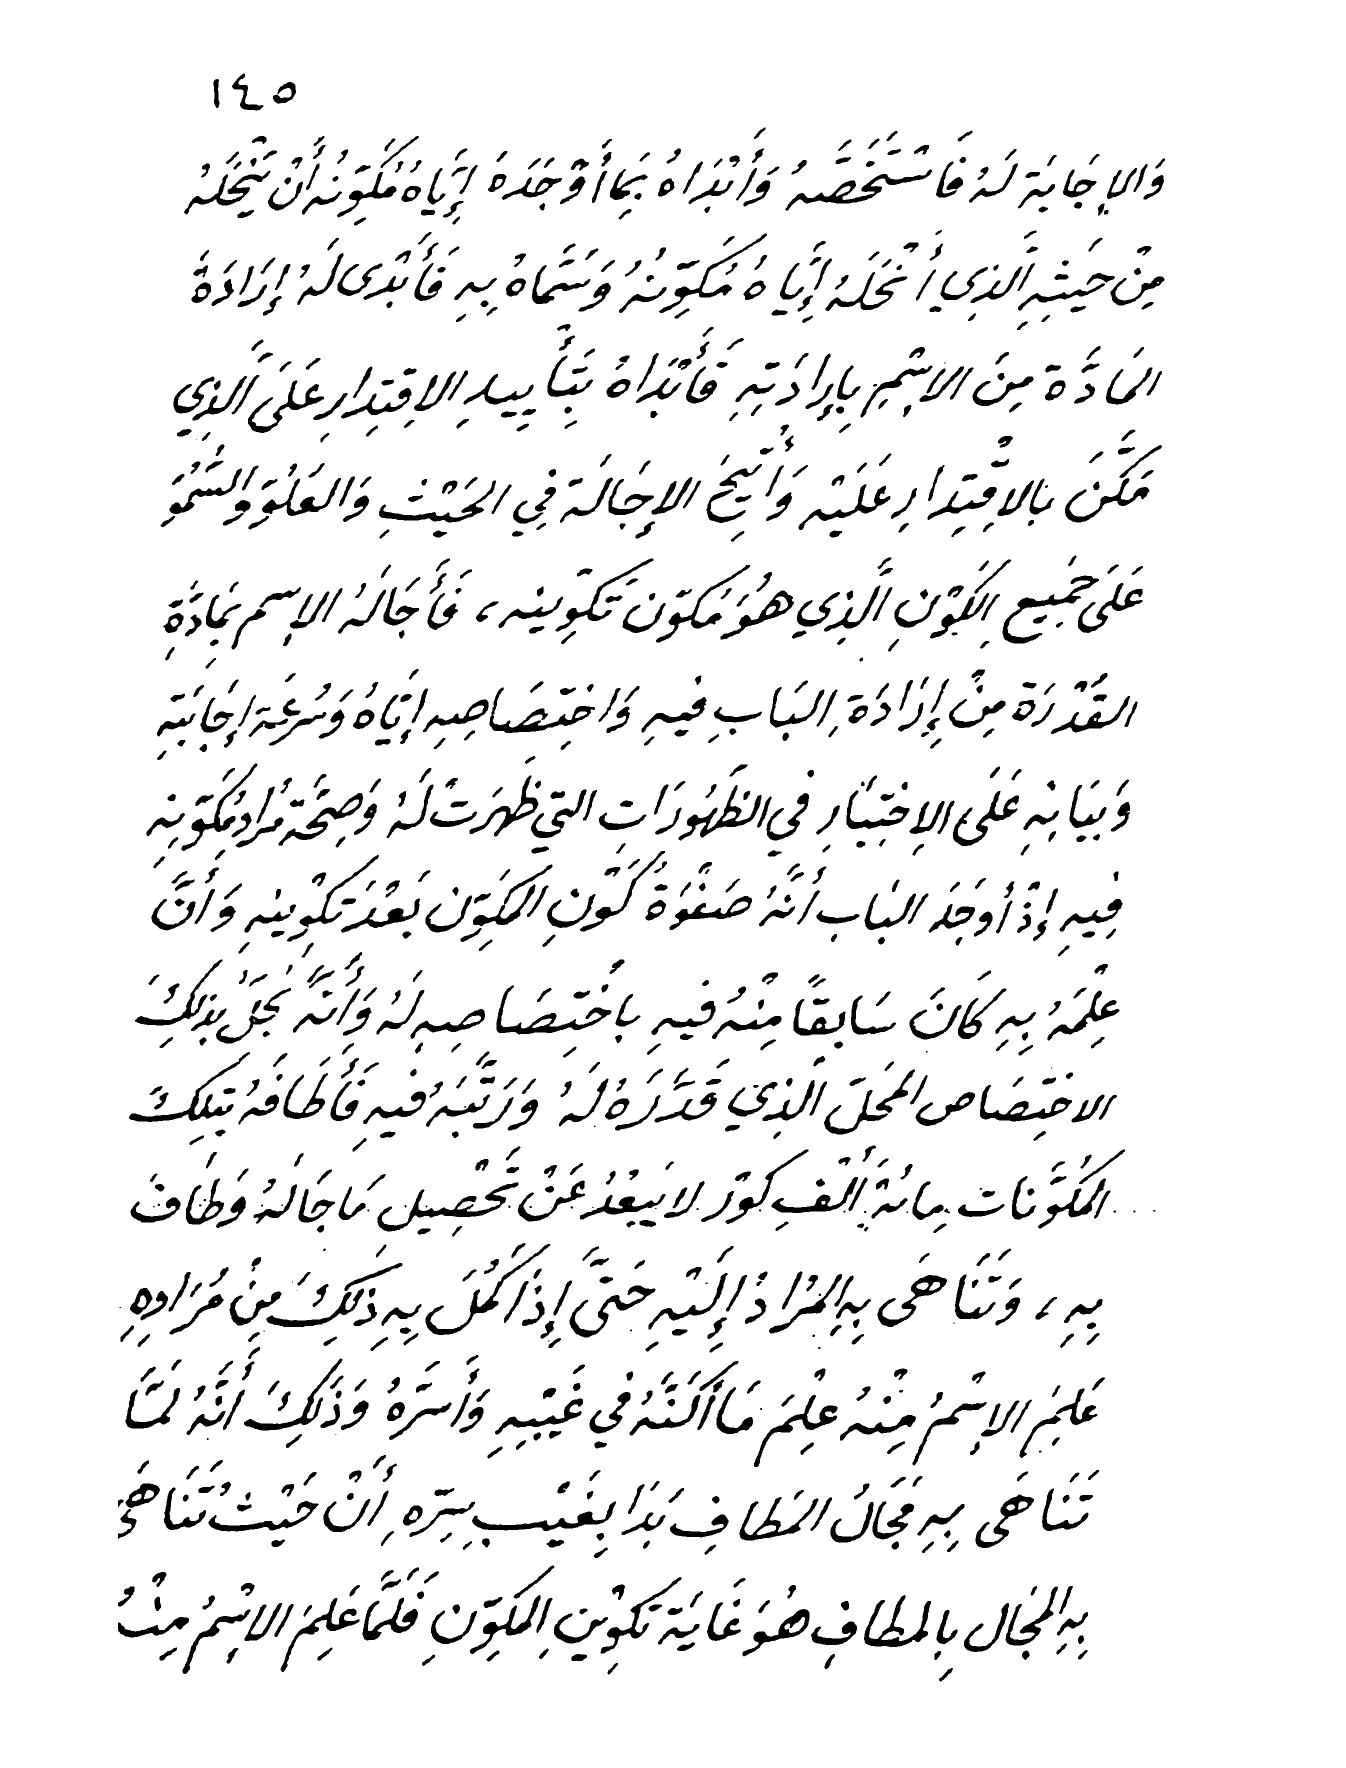 ١٤٥
وَالإِجَابَة لَهُ فَاسْتَخَصَّهُ وَأَبْدَاهُ بِمَا أَوْجَدَهُ إِيَّاهُ مُكَوِّنُه أَنْ يُنْحِلَهُ
مِنْ حَيْثِهِ الَّذِي أَنْحَلَهُ إِيَّاهُ مُكَوِّنُهُ وَسَمَّاهُ بِهِ فَأَبْدَى لَهُ إِرَادَةُ
المَادَّة مِنَ الاِسْمِ بِإِرَادَتِهِ فَأَبْدَاهُ بِتَأْيِيدِ الاِقتِدارِ عَلَى الَّذِي
مَكَّنَ بالاِقْتِدارِ عَلَيْه وَأُتِيحَ الإِجَالَة فِي الحَيْثِ وَالعَلُوِّ وَالسُّمُوِّ
عَلَى جَمِيعِ الكَوْنِ الَّذِي هُوَ مُكوّن تَكْوِينه، فَأَجَالَهُ الإِسم بِمَادَّةِ
القُدْرَة مِنْ إِرَادَةِ البَابِ فِيهِ وَاخْتِصَاصِهِ إِيَّاهُ وَسُرْعَة إِجَابَتِهِ
وَبَيَانِهِ عَلَى الاِخْتِيَارِ في الظُّهُورَاتِ التي ظَهَرَتْ لَهُ وَصِحَّة مُرَادِ مُكَوِّنِهِ
فِيهِ إِذْ أوجَدَ البَاب أَنَّهُ صَفْوَةُ كَوْنِ المكَوِّن بَعْدَ تَكْوِينِهِ وَأَنَّ
عِلْمَهُ بِهِ كَانَ سَابِقًا مِنْهُ فيهِ بِاخْتِصَاصِهِ لَهُ وَأَنَّهُ يَجِلُّ بذلِكَ
الاختِصَاص المَحَلَّ الَّذِي قَدَّرَهُ لَهُ وَرَتَّبَهُ فيهِ فَأَطَافَهُ بتِلكَ
المُكَوَّنات مِائَةَ أَلْفِ كَوْر لا يَبْعُدُ عَنْ تَحْصِيلِ مَا جَالَهُ وَطَافَ
بِهِ، وَتَنَاهَى بِهِ المُرَادُ إِلَيْهِ حَتَّى إِذَا كَمُلَ بِهِ ذَلِكَ مِنْ مُرَادِهِ
عَلِمَ الاِسْمُ مِنْهُ عِلْمَ مَا أَكَنَّهُ في غَيْبِهِ وَأَسَرَّهُ وَذَلِكَ أَنَّهُ لَمَّا
تَنَاهَى بِهِ مَجَالُ المَطافِ بَدَا بِغَيْبِ سِرِّهِ أَنْ حَيْثُ تَنَاهَى
بِهِ المَجَال بِالمطافِ هُوَ غَايَة تَكوْينِ المكَوِّنِ فَلَمَّا عَلِمَ الاِسْمُ مِنْهُ